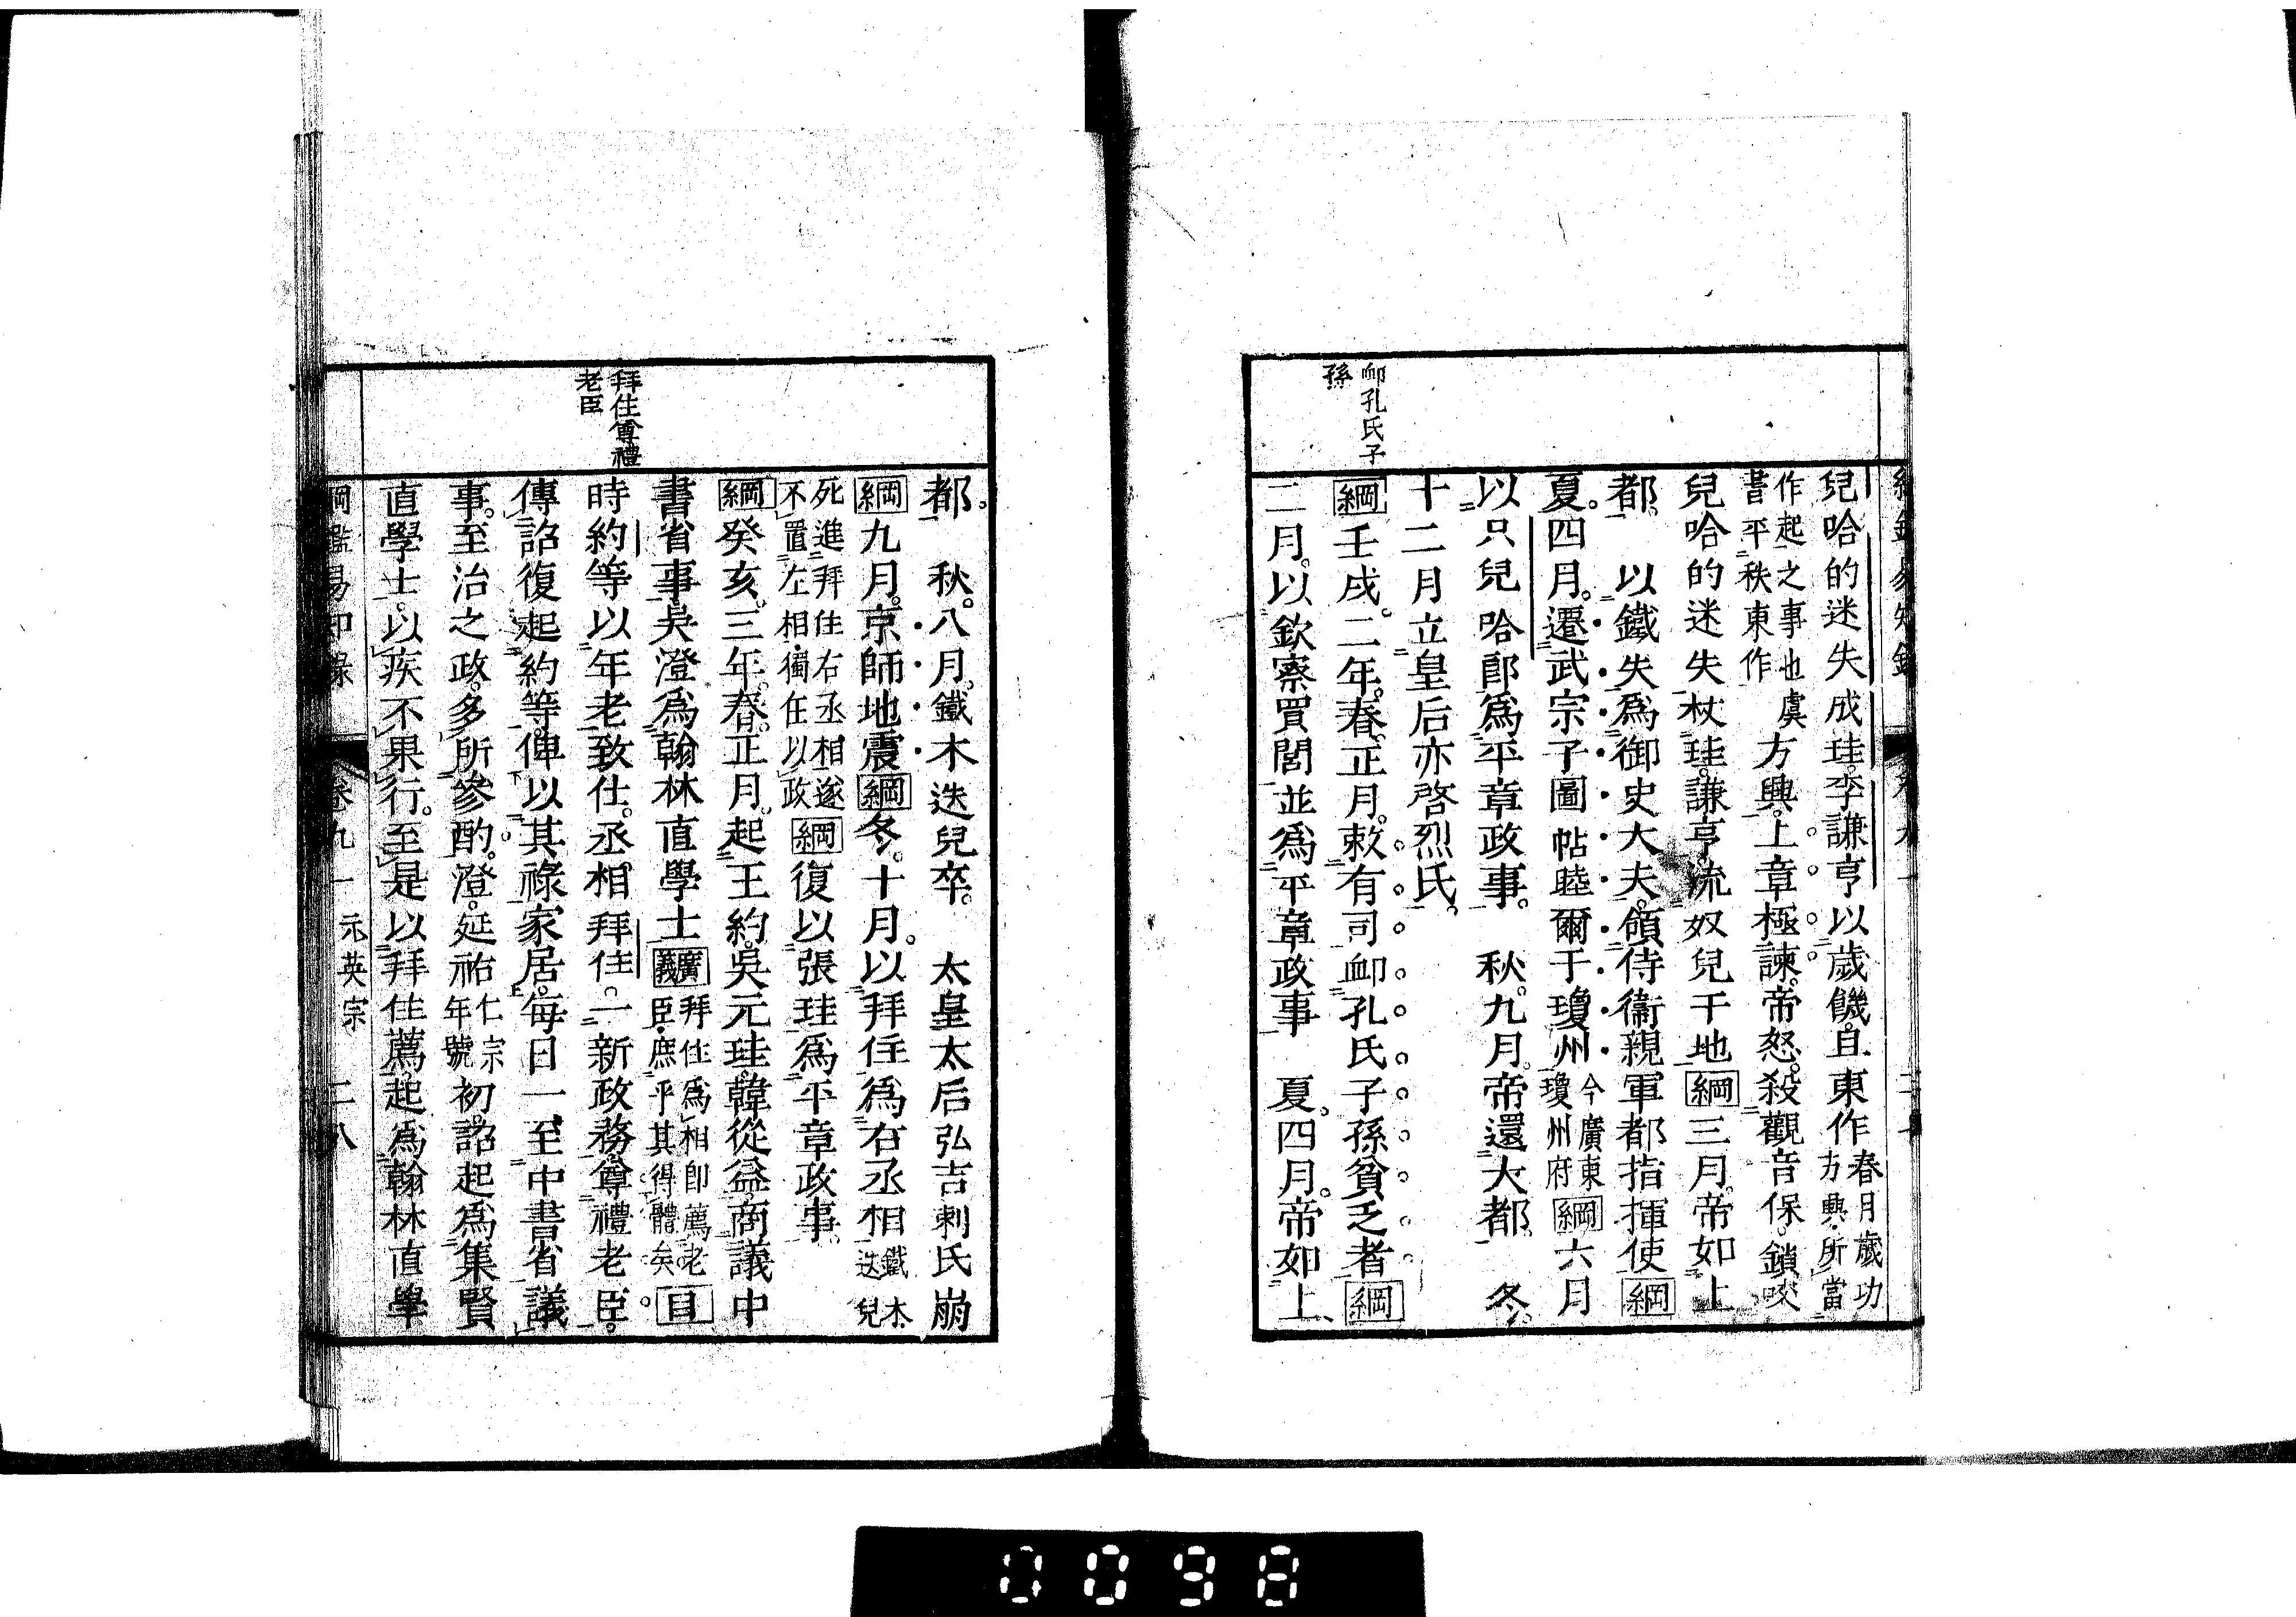 卹孔氏子
孫
兒哈的迷失成珪李謙亨以歲饑且東作春月歲功方興所當
作起之事也虞書平秩東作方興上章極諫帝怒殺觀音保鎖咬
兒哈的迷失杖珪謙亨流奴兒干地綱三月帝如上
都　以鐵失爲御史大夫領侍衞親軍都指揮使綱
夏四月遷武宗子圖帖睦爾于瓊州今廣東瓊州府綱六月
以只兒哈郎爲平章政事　秋九月帝還大都　冬
十二月立皇后亦啓烈氏
綱壬戌二年春正月敕有司卹孔氏子孫貧乏者綱
二月以欽察買閭並爲平章政事　夏四月帝如上
拜住尊禮
老臣
都　秋八月鐵木迭兒卒　太皇太后弘吉剌氏崩
綱九月京師地震綱冬十月以拜住爲右丞相鐵木迭兒
死進拜住右丞相遂不置左相獨任以政綱復以張珪爲平章政事
綱癸亥三年春正月起王約吳元珪韓從益商議中
書省事吳澄爲翰林直學士廣義拜住爲相卽薦老臣庶乎其得體矣目
時約等以年老致仕丞相拜住一新政務尊禮老臣
傳詔復起約等俾以其祿家居每日一至中書省議
事至治之政多所參酌澄延祐仁宗年號初詔起爲集賢
直學士以疾不果行至是以拜住薦起爲翰林直學
綱鑑易知錄　卷九一　元英宗　二八